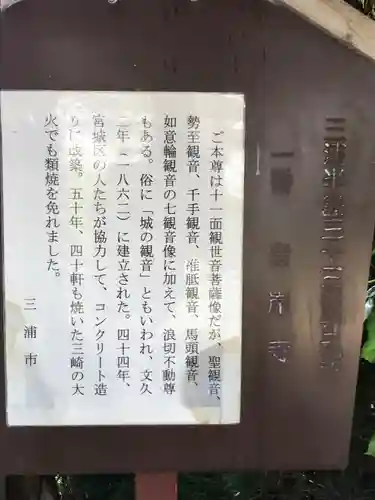 三浦半島三十三観音
一番　音岸寺
ご本尊は十一面観世音菩薩像だが、聖観音、
勢至観音、千手観音、准胝観音、馬頭観音、
如意輪観音の七観音像に加えて、浪切不動尊
もある。俗に「城の観音」ともいわれ、文久
二年（一八六二）に建立された。四十四年、
宮城区の人たちが協力して、コンクリート造
りに改築。五十年、四十軒も焼いた三崎の大
火でも類焼を免れました。
三浦市